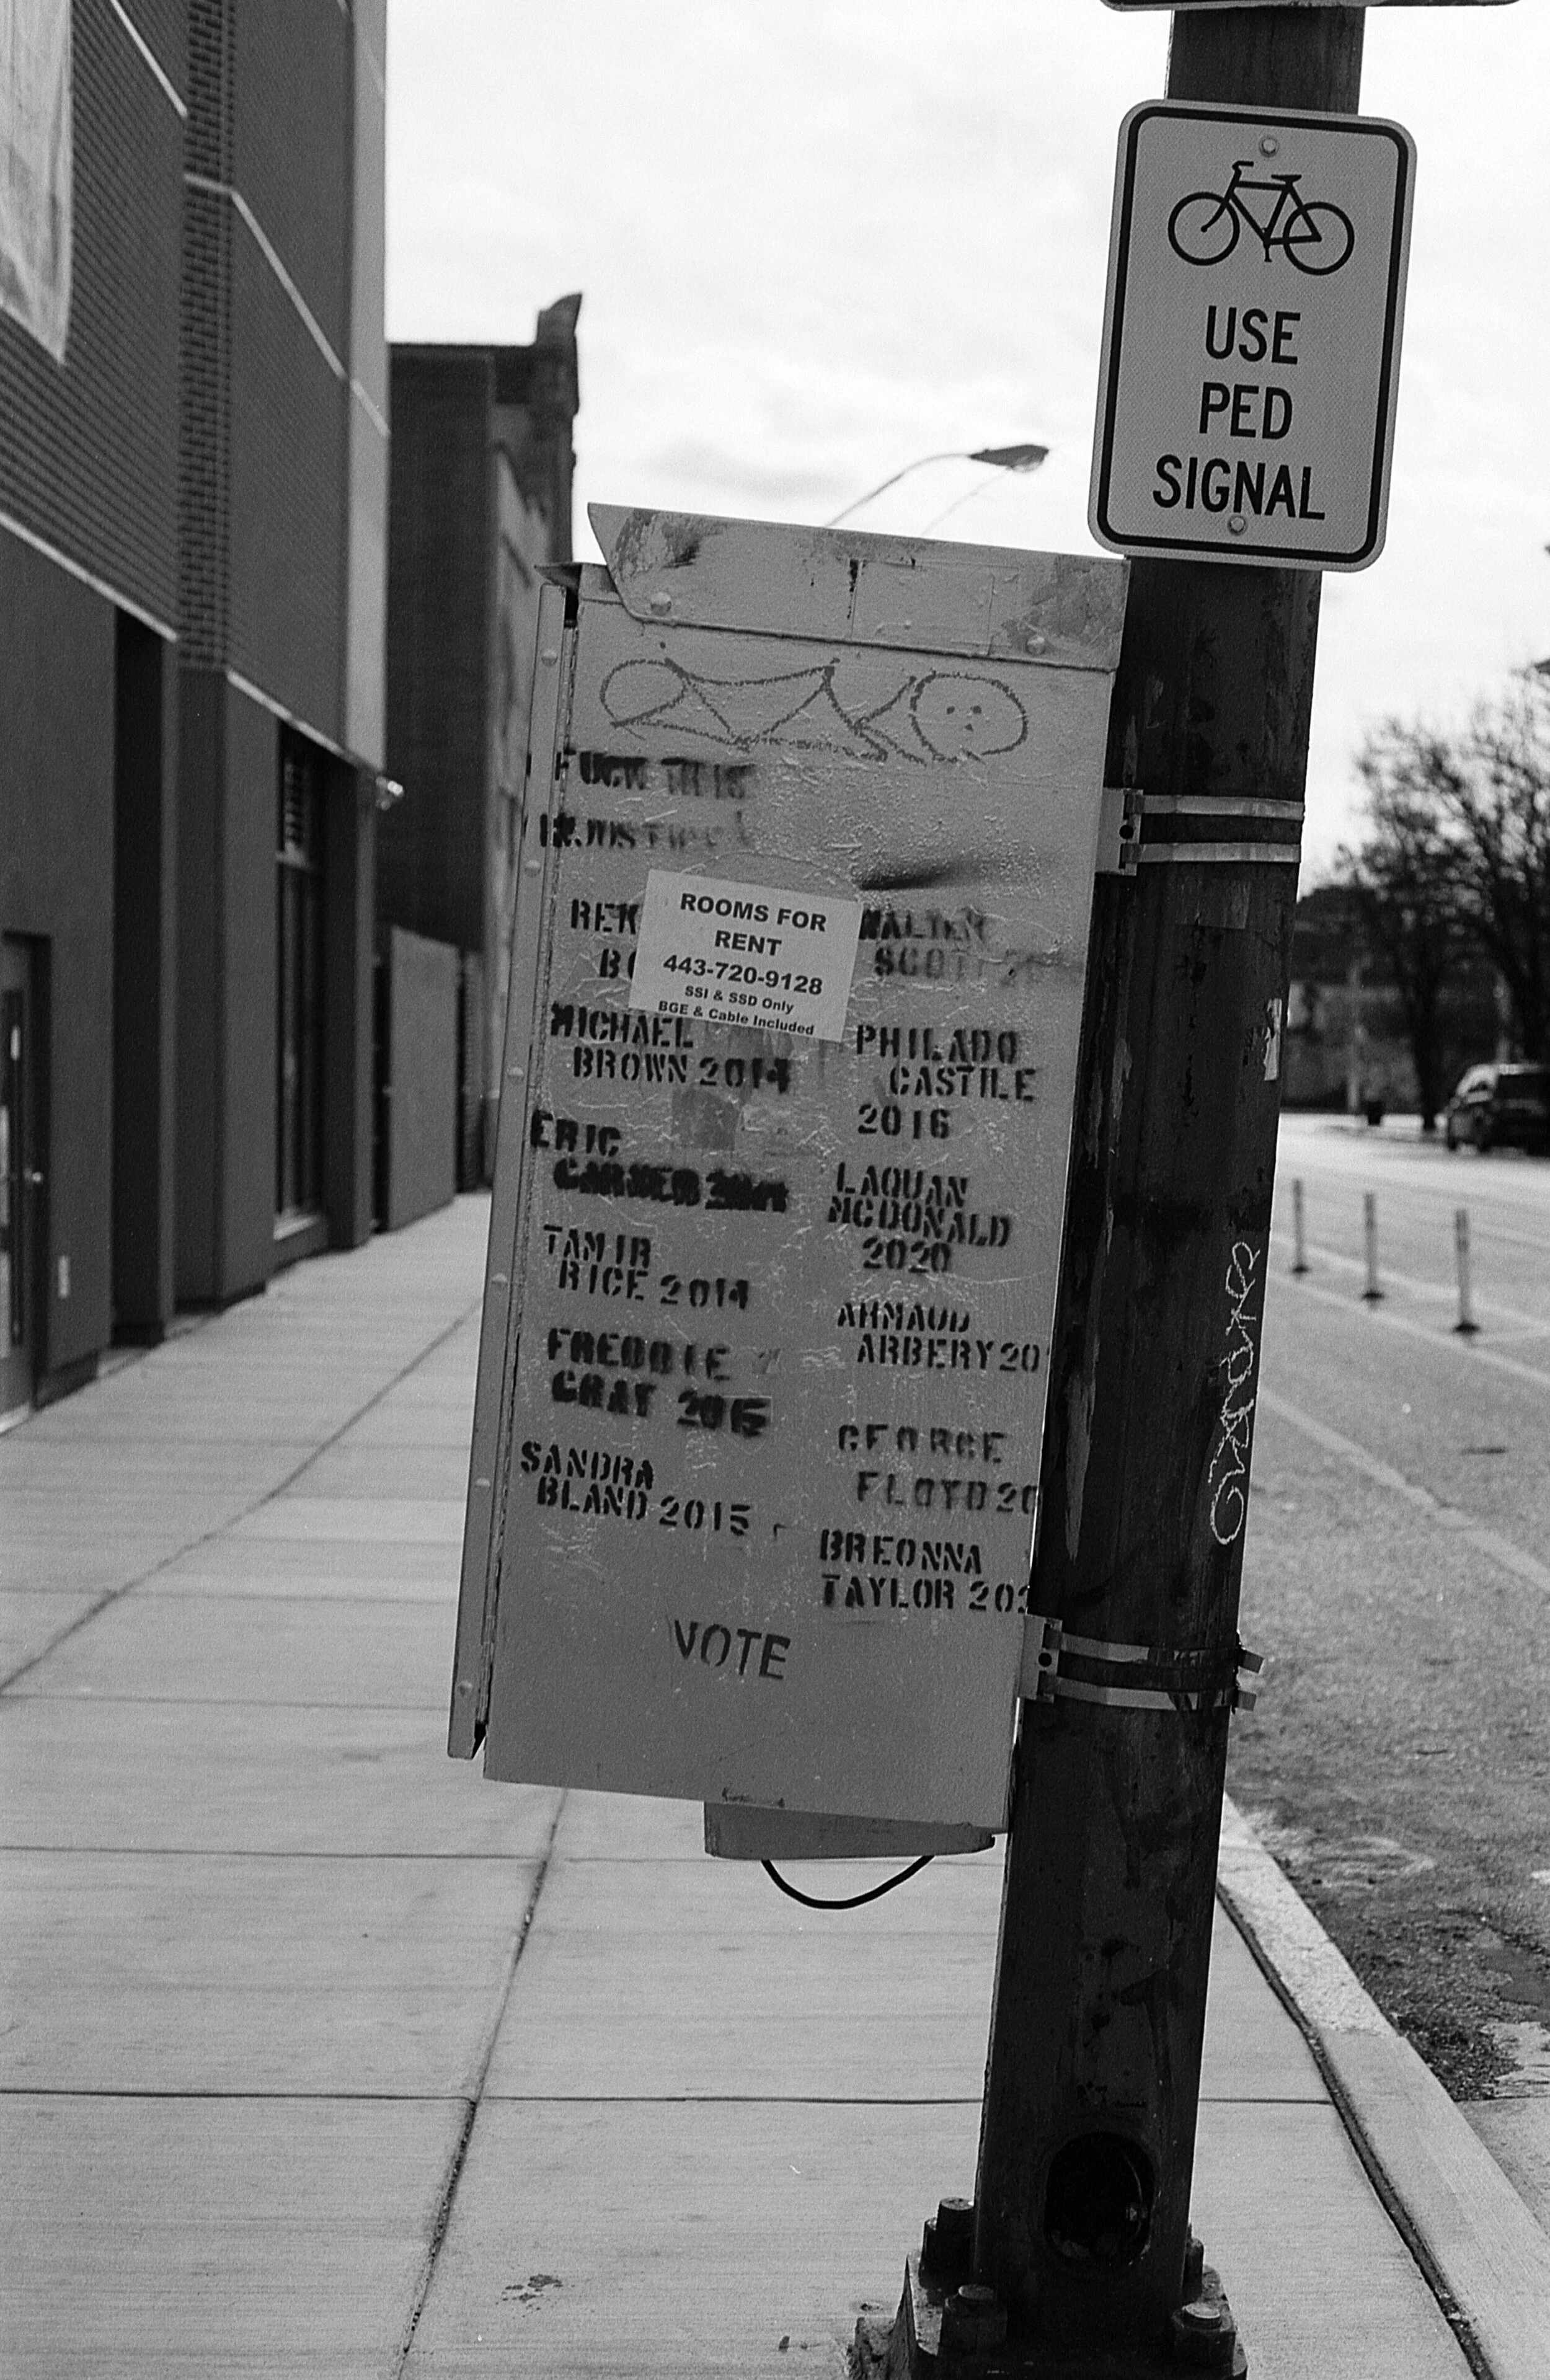 USE
PED
SIGNAL
FUCK THIS
INJUSTICE
ROOMS FOR
RENT
443-720-9128
SSI & SSD Only
BGE & Cable Included
REK
BO
MICHAEL
BROWN 2014
ERIC
GARNER 2014
TAMIR
RICE 2014
FREDDIE
GRAY 2015
SANDRA
BLAND 2015
WALTER
SCOTT
PHILADO
CASTILE
2016
LAQUAN
MCDONALD
2020
AHMAUD
ARBERY 20
GEORGE
FLOYD 20
BREONNA
TAYLOR 202
VOTE